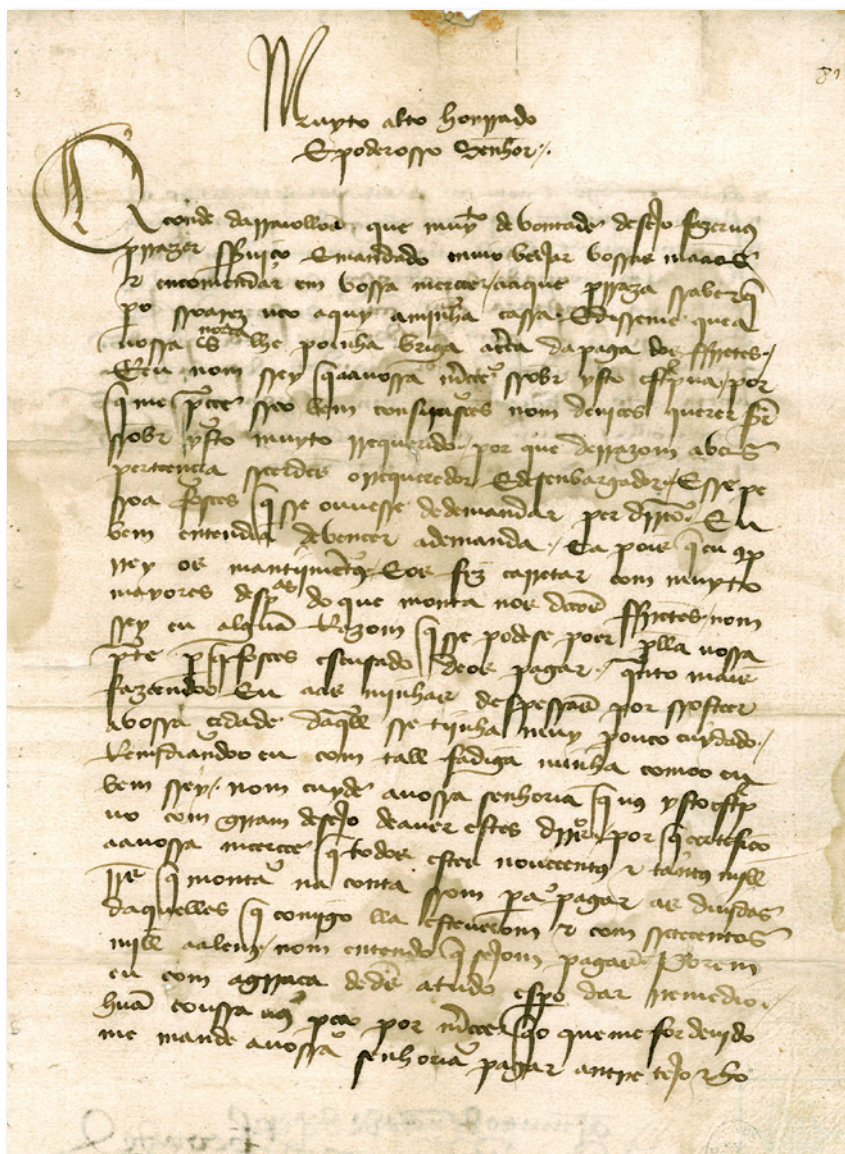 Muyto alto honrrado
E poderosso Senhor
O conde darrayollos que muyto de vontade desejo fazervos
prrazer serviço E mandado envio beijar vossas maaos
E encomendar em vossa mercee aaque prraza ssaber q
po ssoarez veo aquy a minha cassa E disseme que a
vossa mercee lhe poinha briga acerca da paga dos ffretes
E eu nom ssey q a avossa mercee ssobr ysto escrpva por
q me pce sseo bem conssirasces nom deviees querer sser
ssobr ysto muyto rrequerido por que derrazom a vos
perteencia sseerdes o rrequeredor E desenbargador E sse pe
ssoa fosces q sse ouvesse de demandar per drrto Eu
bem entendia de vencer a demanda Ca pois q eu conp
rrey os mantiimentos E os fiz carretar com muyto
mayores despesas do que monta nos dictos ffretes nom
ssey eu alguua Razom q sse podese poer plla vossa
pte p q fosces escusado de os pagar qnto mais
fazeendoo Eu aas minhas despessas por ssosteer
a vossa cidade daqll sse tiinha muy pouco cuydado
Remidiandoo eu com tall fadiga minha comoo eu
bem ssey nom cuyde a vossa senhoria q vos ysto escrp
vo com gram desejo de aver estes drros por q certefico
aa vossa mercee q todos estes novecentos E tantos mill
rrs q monta na conta ssom pa pagar as dividas
daquelles q comigo lla esteverom E com ssetecentos
mill aalem nom entendo q sejom pagas Porem
eu com a graca de ds a tudo espo dar rremedio
huua coussa vos peço por mercee q o que me for devido
me mande a vossa senhoria pagar antre tejo E